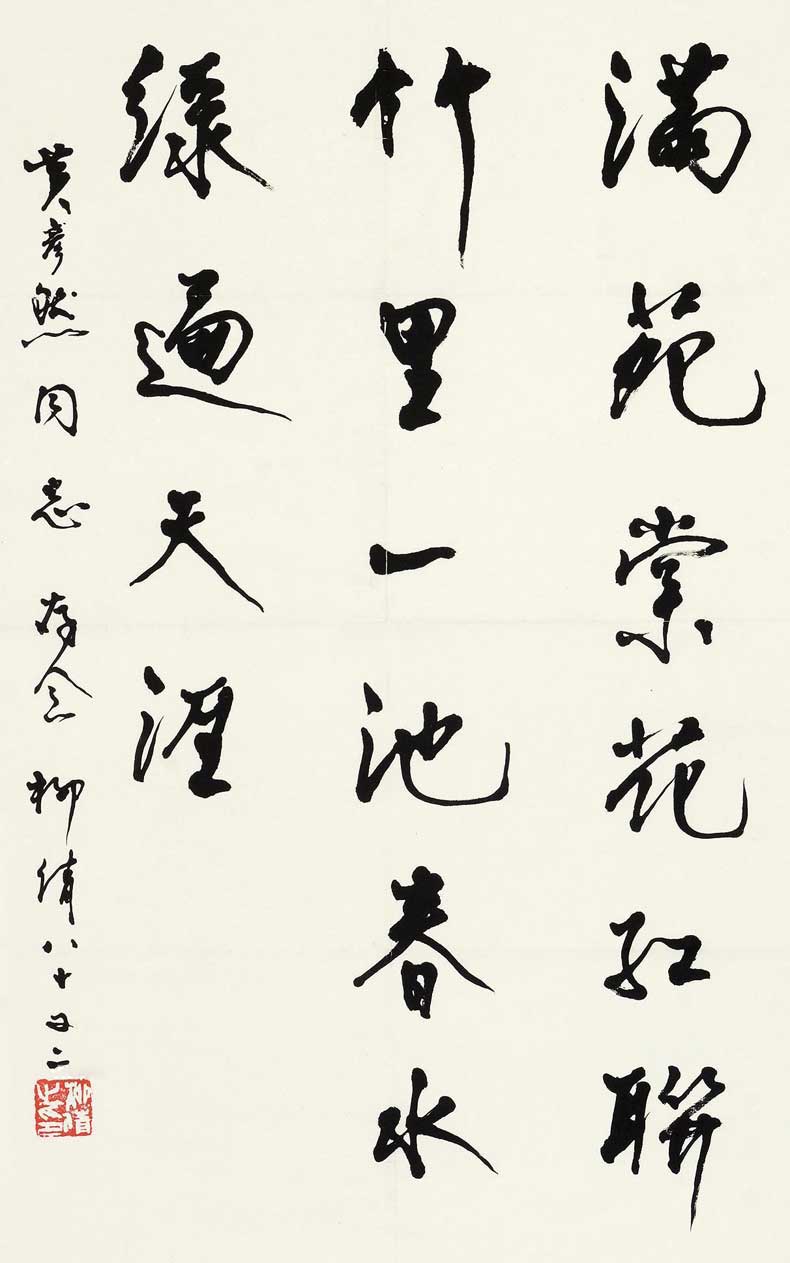 满苑棠花红联
竹里一池春水
绿遍天涯
黄彦然同志 存念 柳倩八十又二
柳倩